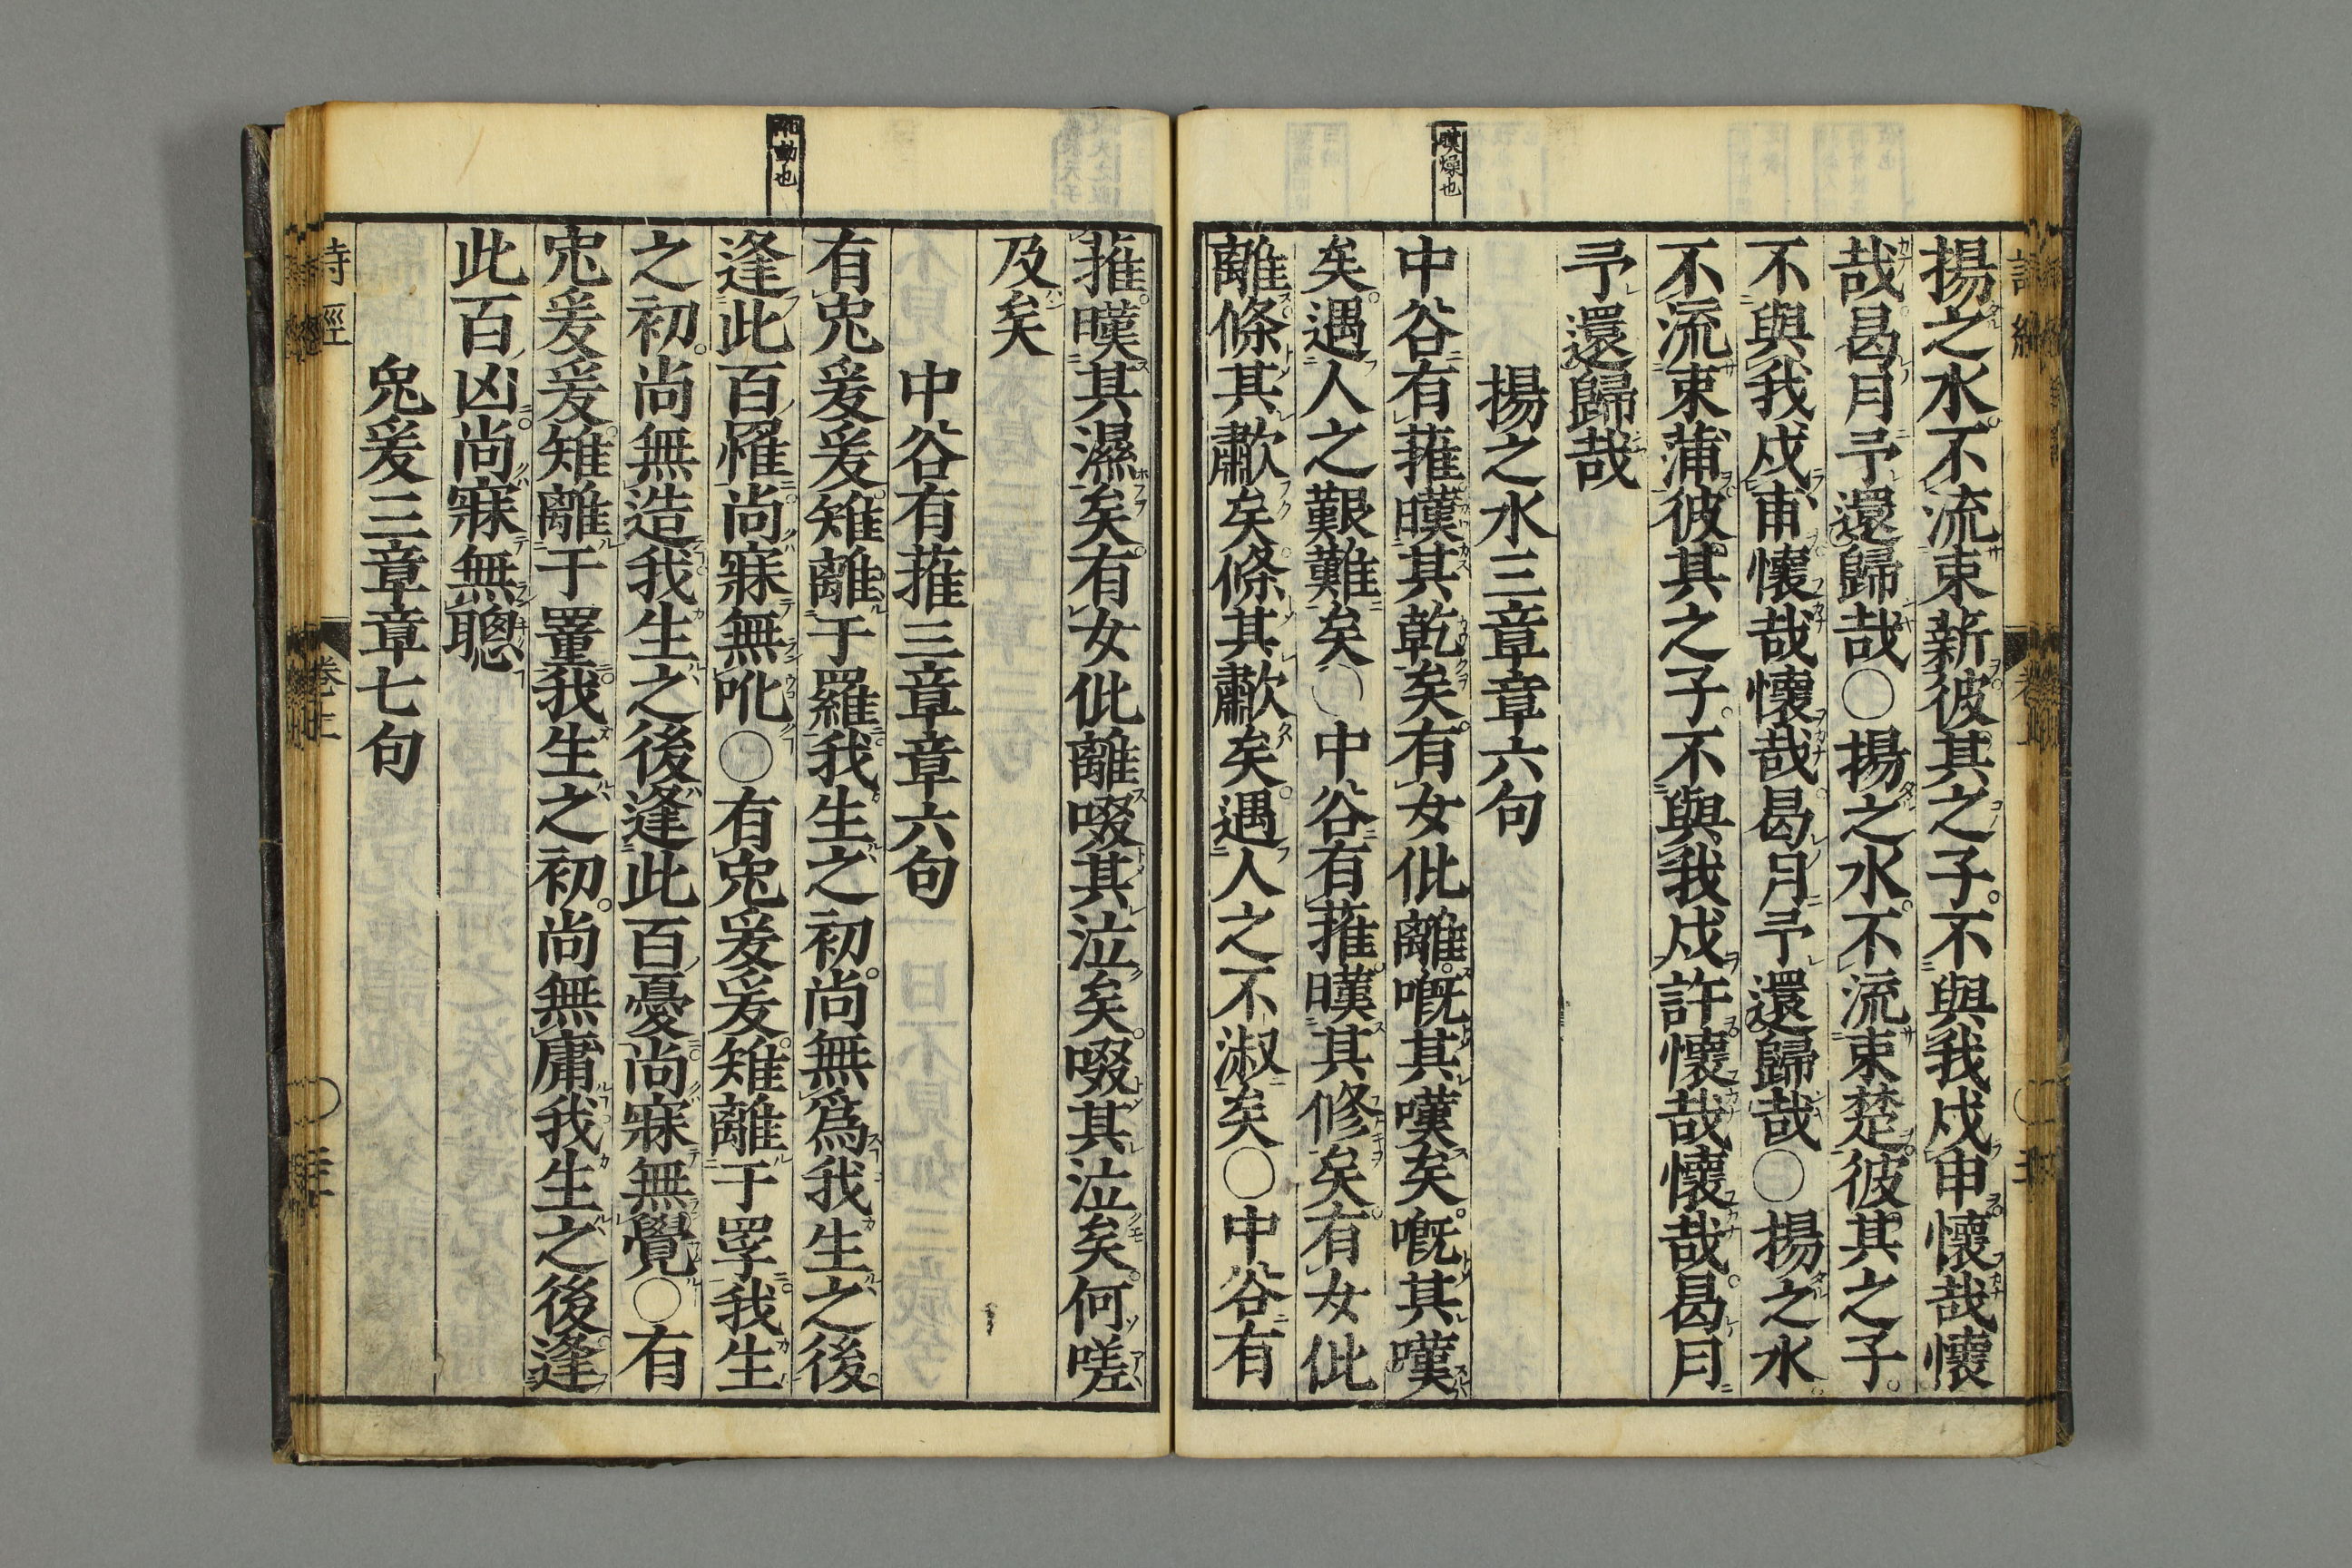 暵燥也
揚之水不流束薪彼其之子不與我戍申懷哉懷
哉曷月予還歸哉○揚之水不流束楚彼其之子
不與我戍甫懷哉懷哉曷月予還歸哉○揚之水
不流束蒲彼其之子不與我戍許懷哉懷哉曷月
予還歸哉
揚之水三章章六句
中谷有蓷暵其乾矣有女仳離嘅其嘆矣嘅其嘆
矣遇人之艱難矣○中谷有蓷暵其修矣有女仳
離條其歗矣條其歗矣遇人之不淑矣○中谷有
動也
蓷暵其濕矣有女仳離啜其泣矣啜其泣矣何嗟
及矣
中谷有蓷三章章六句
有兎爰爰雉離于羅我生之初尚無爲我生之後
逢此百罹尚寐無吪○有兎爰爰雉離于罦我生
之初尚無造我生之後逢此百憂尚寐無覺○有
兎爰爰雉離于罿我生之初尚無庸我生之後逢
此百凶尚寐無聰
兎爰三章章七句
詩經
卷上